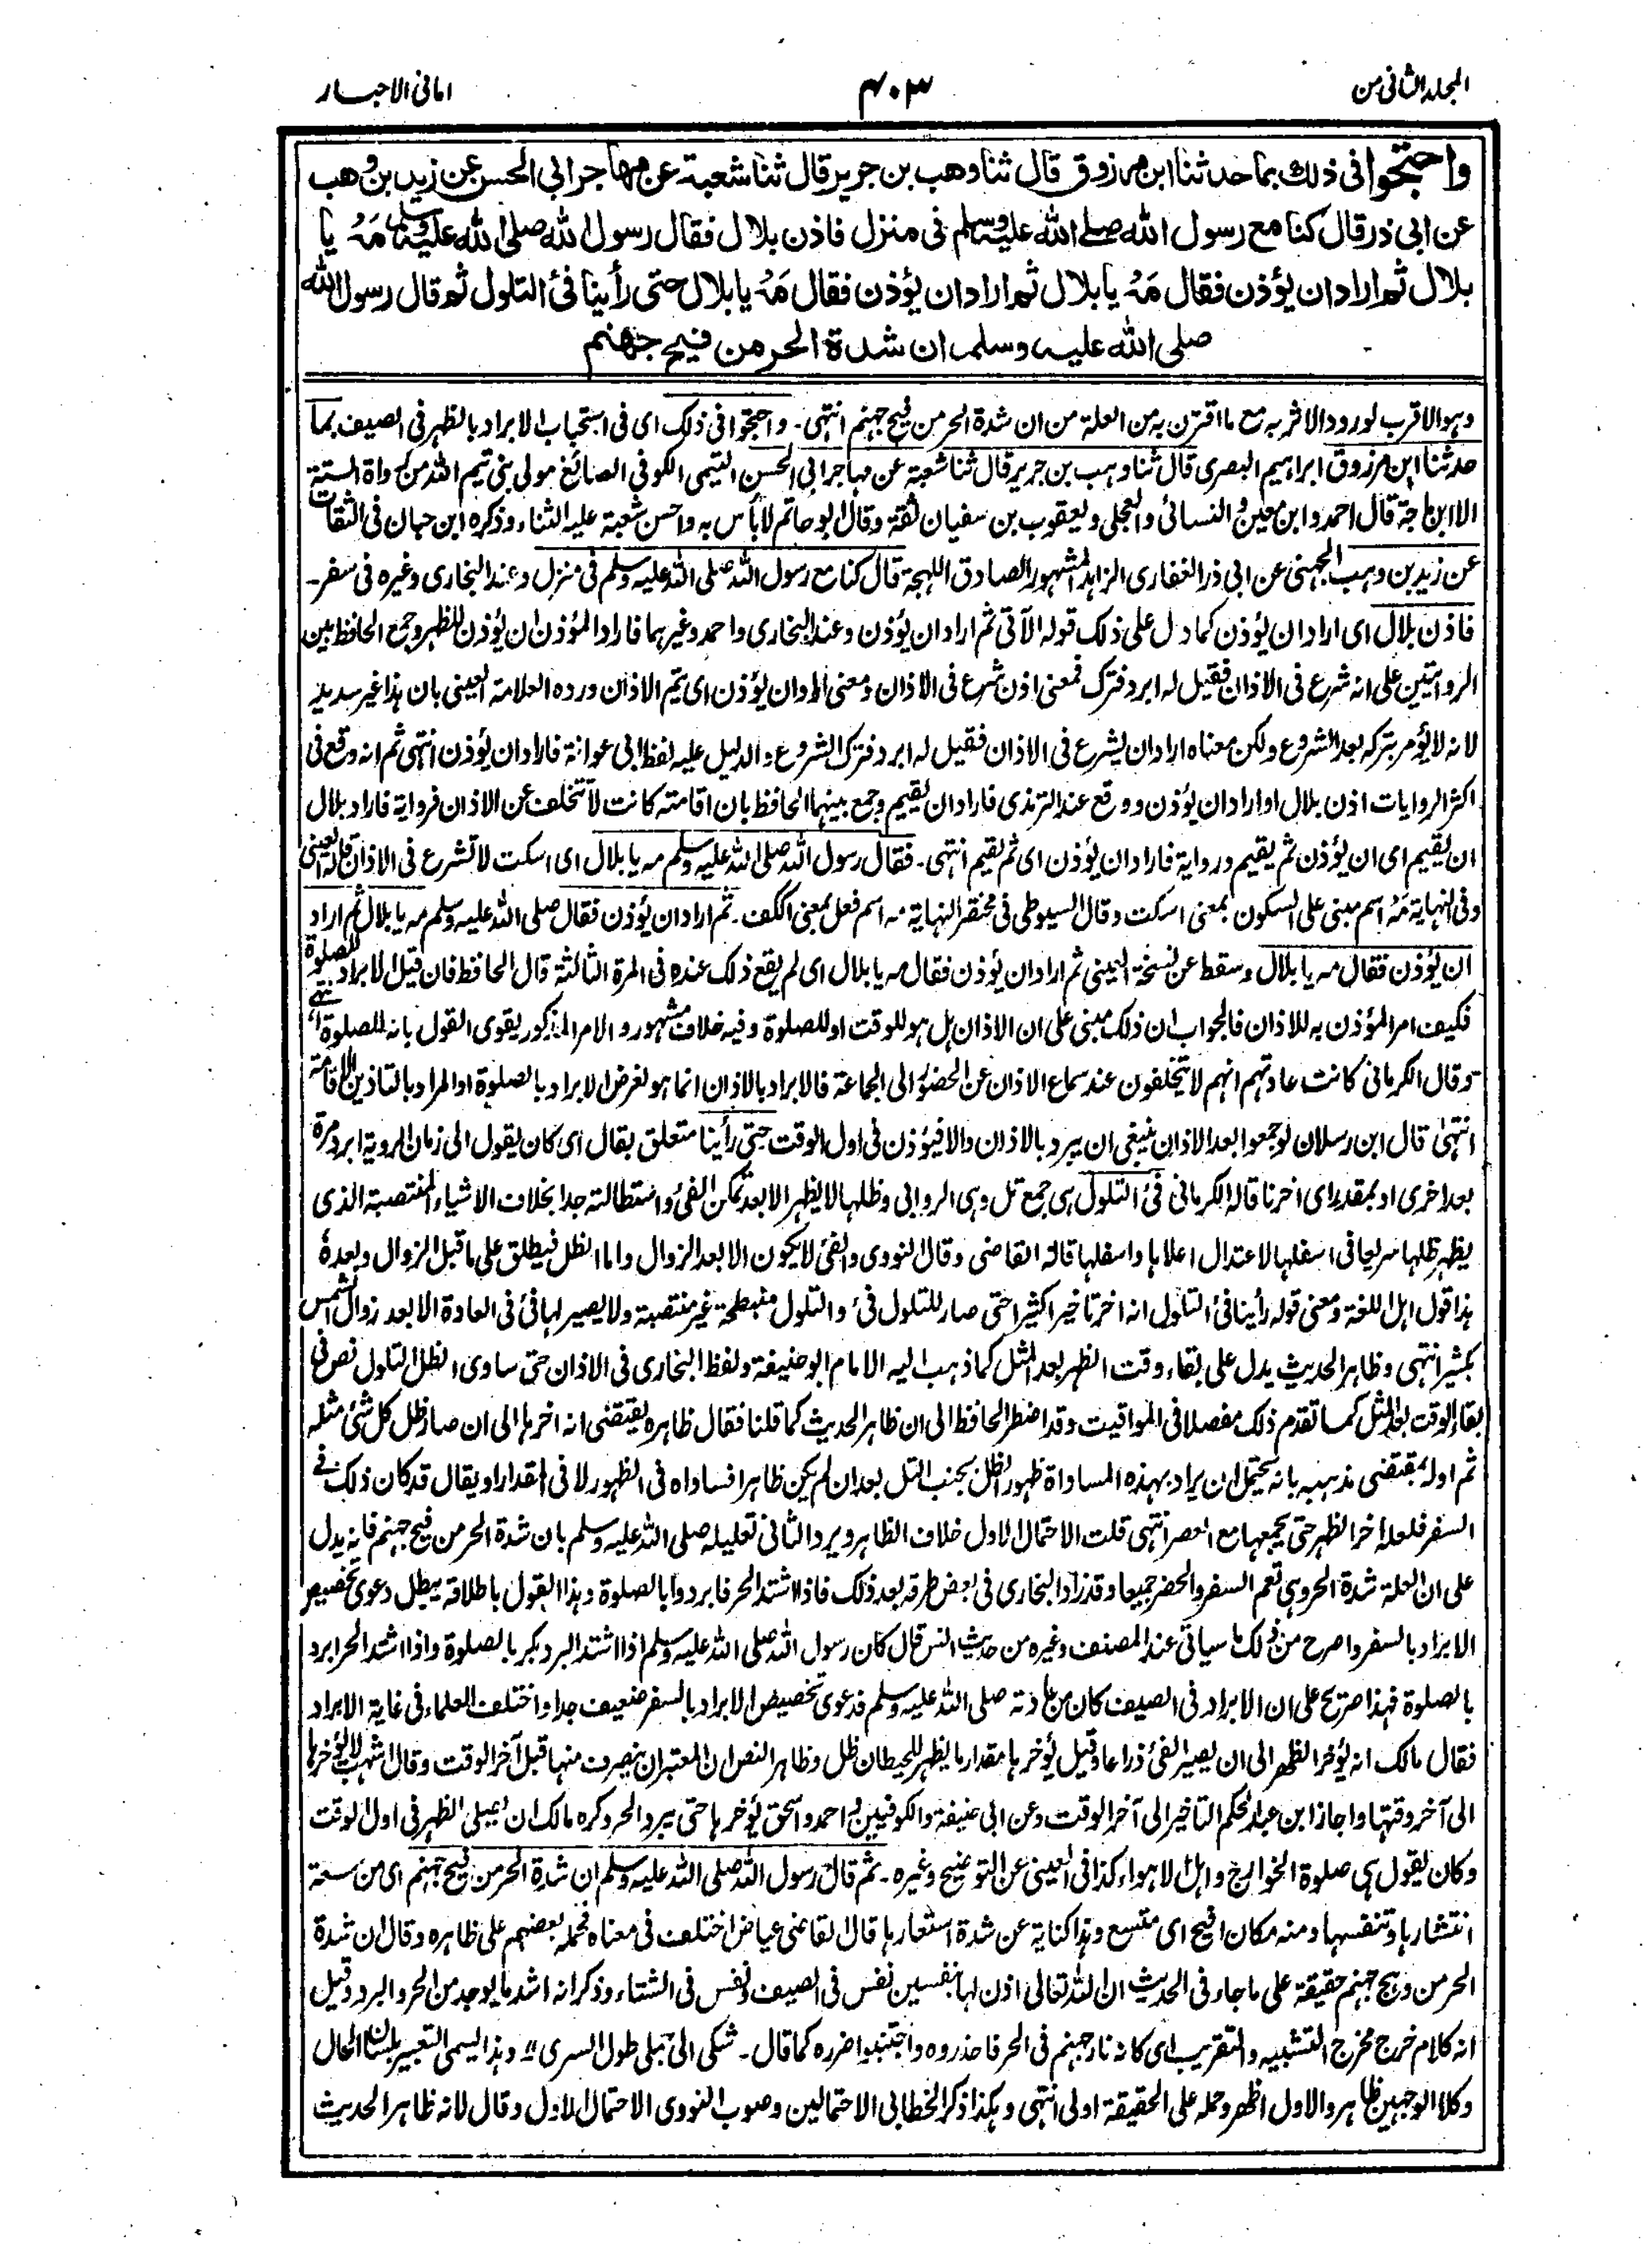 المجلد الثانی من
۴۰۳
امانی الاحبار
واحتجوا فی ذلك بما حدثنا ابن مرزوق قال ثنا وهب بن جریر قال ثنا شعبة عن مهاجر ابی الحسن عن زید بن وهب
عن ابی ذر قال کنا مع رسول الله صلے الله علیه وسلم فی منزل فاذن بلال فقال رسول الله صلی الله علیه وسلم مَهْ یا
بلال ثم اراد ان یؤذن فقال مَهْ یا بلال ثم اراد ان یؤذن فقال مَهْ یا بلال حتی رأینا فئ التلول ثم قال رسول الله
صلی الله علیه وسلم ان شدة الحر من فیح جهنم
وہو الاقرب لورود الاثر بہ مع ما اقترن بہ من العلة من ان شدة الحر من فیح جہنم انتہی۔ واحتجوا فی ذلک ای فی استحباب الابراد بالظہر فی الصیف بما
حدثنا ابن مرزوق ابراہیم البصری قال ثنا وہب بن جریر قال ثنا شعبة عن مہاجر ابی الحسن التیمی الکوفی الصائغ مولی بنی تیم اللہ من رواة الستة
الا ابن ماجة قال احمد وابن معین والنسائی والعجلی ویعقوب بن سفیان ثقة وقال ابو حاتم لا بأس بہ واحسن شعبة علیہ الثناء وذکرہ ابن حبان فی الثقات
عن زید بن وہب الجہنی عن ابی ذر الغفاری الزاہد المشہور الصادق اللہجة قال کنا مع رسول اللہ صلی اللہ علیہ وسلم فی منزل وعند البخاری وغیرہ فی سفر۔
فاذن بلال ای اراد ان یؤذن کما دل علی ذلک قولہ الآتی ثم اراد ان یؤذن وعند البخاری واحمد وغیرہما فاراد المؤذن ان یؤذن للظہر وجمع الحافظ بین
الروایتین علی انہ شرع فی الاذان فقیل لہ ابرد فترک فمعنی اذن شرع فی الاذان ومعنی اراد ان یؤذن ای یتم الاذان وردہ العلامة العینی بان ہذا غیر سدید
لانہ لا یؤمر بترکہ بعد الشروع ولکن معناہ اراد ان یشرع فی الاذان فقیل لہ ابرد فترک الشروع والدلیل علیہ لفظ ابی عوانة فاراد ان یؤذن انتہی ثم انہ وقع فی
اکثر الروایات اذن بلال او اراد ان یؤذن ووقع عند الترمذی فاراد ان یقیم وجمع بینہما الحافظ بان اقامتہ کانت لا تتخلف عن الاذان فروایة فاراد بلال
ان یقیم ای ان یؤذن ثم یقیم وروایة فاراد ان یؤذن ای ثم یقیم انتہی۔ فقال رسول اللہ صلی اللہ علیہ وسلم مہ یا بلال ای اسکت لا تشرع فی الاذان قالہ العینی
وفی النہایة مَہْ اسم مبنی علی السکون بمعنی اسکت وقال السیوطی فی مختصر النہایة مہ اسم فعل بمعنی اکفف۔ ثم اراد ان یؤذن فقال صلی اللہ علیہ وسلم مہ یا بلال ثم اراد
ان یؤذن فقال مہ یا بلال وسقط عن نسخة العینی ثم اراد ان یؤذن فقال مہ یا بلال ای لم یقع ذلک عندہ فی المرة الثالثة قال الحافظ فان قیل الابراد للصلوة
فکیف امر المؤذن بہ للاذان فالجواب ان ذلک مبنی علی ان الاذان ہل ہو للوقت او للصلوة وفیہ خلاف مشہور والامر المذکور یقوی القول بانہ للصلوة انتہے
وقال الکرمانی کانت عادتہم انہم لا یتخلفون عند سماع الاذان عن الحضور الی الجماعة فالابراد بالاذان انما ہو لغرض الابراد بالصلوة او المراد بالتاذین الاقامة
انتہیٰ قال ابن رسلان لو جمعوا بعد الاذان ینبغی ان یبرد بالاذان والا فیؤذن فی اول الوقت حتی رأینا متعلق بقال ای کان یقول الی زمان الرویة ابرد مرة
بعد اخری او بمقدر ای اخرنا قالہ الکرمانی فئ التلول ہی جمع تل وہی الروابی وظلہا لا یظہر الا بعد تمکن الفئ واستطالتہ جدا بخلاف الاشیاء المنتصبة الذی
یظہر ظلہا سریعا فی اسفلہا لاعتدال اعلاہا واسفلہا قالہ القاضی وقال النووی والفئ لا یکون الا بعد الزوال واما الظل فیطلق علی ما قبل الزوال وبعدہٗ
ہذا قول اہل اللغة ومعنی قولہ رأینا فئ التلول انہ اخر تاخیرا کثیرا حتی صار للتلول فئ والتلول منبطحة غیر منتصبة ولا یصیر لہا فئ فی العادة الا بعد زوال الشمس
بکثیر انتہی وظاہر الحدیث یدل علی بقاء وقت الظہر بعد المثل کما ذہب الیہ الامام ابو حنیفة ولفظ البخاری فی الاذان حتی ساوی الظل التلول نص فی
بقاء الوقت بعد المثل کما تقدم ذلک مفصلا فی المواقیت وقد اضطر الحافظ الی ان ظاہر الحدیث کما قلنا فقال ظاہرہ یقتضی انہ اخرہا الی ان صار ظل کل شئ مثلہ
ثم اولہ بمقتضی مذہبہ بانہ یحتمل ان یراد بہذہ المساواة ظہور الظل بجنب التل بعد ان لم یکن ظاہرا فساواہ فی الظہور لا فی المقدار او یقال قد کان ذلک فے
السفر فلعلہ اخر الظہر حتی یجمعہا مع العصر انتہی قلت الاحتمال الاول خلاف الظاہر ویرد الثانی تعلیلہ صلی اللہ علیہ وسلم بان شدة الحر من فیح جہنم فانہ یدل
علی ان العلة شدة الحر وہی تعم السفر والحضر جمیعا وقد زاد البخاری فی بعض طرقہ بعد ذلک فاذا اشتد الحر فابردوا بالصلوة وہذا القول باطلاقہ یبطل دعوی تخصیص
الابراد بالسفر واصرح من ذلک ما سیاتی عند المصنف وغیرہ من حدیث انس قال کان رسول اللہ صلی اللہ علیہ وسلم اذا اشتد البرد بکر بالصلوة واذا اشتد الحر ابرد
بالصلوة فہذا صریح علی ان الابراد فی الصیف کان من عادتہ صلی اللہ علیہ وسلم فدعوی تخصیص الابراد بالسفر ضعیف جدا واختلف العلماء فی غایة الابراد
فقال مالک انہ یؤخر الظہر الی ان یصیر الفئ ذراعا وقیل یؤخرہا مقدار ما یظہر للحیطان ظل وظاہر النص ان المعتبر ان ینصرف منہا قبل آخر الوقت وقال اشہب لا یؤخرہا
الی آخر وقتہا واجاز ابن عبد الحکم التاخیر الی آخر الوقت وعن ابی حنیفة والکوفیین واحمد واسحق یؤخرہا حتی یبرد الحر وکرہ مالک ان یصلی الظہر فی اول الوقت
وکان یقول ہی صلوة الخوارج واہل الاہواء کذا فی العینی عن التوضیح وغیرہ۔ ثم قال رسول اللہ صلی اللہ علیہ وسلم ان شدة الحر من فیح جہنم ای من سعة
انتشارہا وتنفسہا ومنہ مکان افیح ای متسع وہذا کنایة عن شدة استعارہا قال القاضی عیاض اختلف فی معناہ فحملہ بعضہم علی ظاہرہ وقال ان شدة
الحر من وہج جہنم حقیقة علی ما جاء فی الحدیث ان اللہ تعالی اذن لہا بنفسین نفس فی الصیف ونفس فی الشتاء وذکر انہ اشد ما یوجد من الحر والبرد وقیل
انہ کلام خرج مخرج التشبیہ والتقریب ای کانہ نار جہنم فی الحر فاحذروہ واجتنبوا ضررہ کما قال۔ شکی الی جملی طول السری ؞ وہذا یسمی التعبیر بلسان الحال
وکلا الوجہین ظاہر والاول اظہر وحملہ علی الحقیقة اولی انتہی وہکذا ذکر الخطابی الاحتمالین وصوب النووی الاحتمال الاول وقال لانہ ظاہر الحدیث